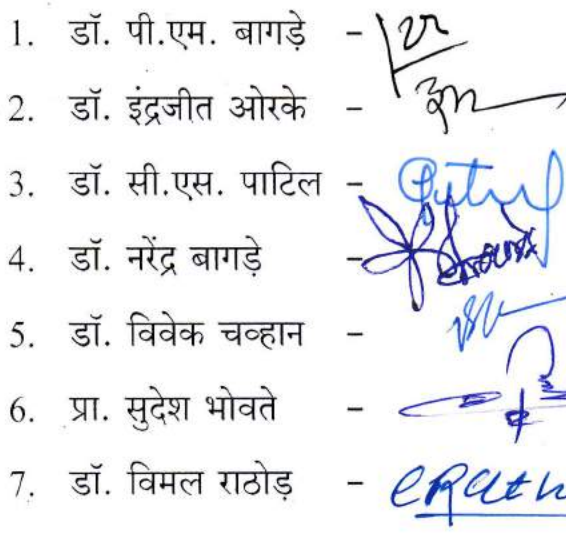 1. डॉ. पी.एम. बागड़े -
2. डॉ. इंद्रजीत ओरके -
3. डॉ. सी.एस. पाटिल -
4. डॉ. नरेंद्र बागड़े -
5. डॉ. विवेक चव्हान -
6. प्रा. सुदेश भोवते -
7. डॉ. विमल राठोड़ -